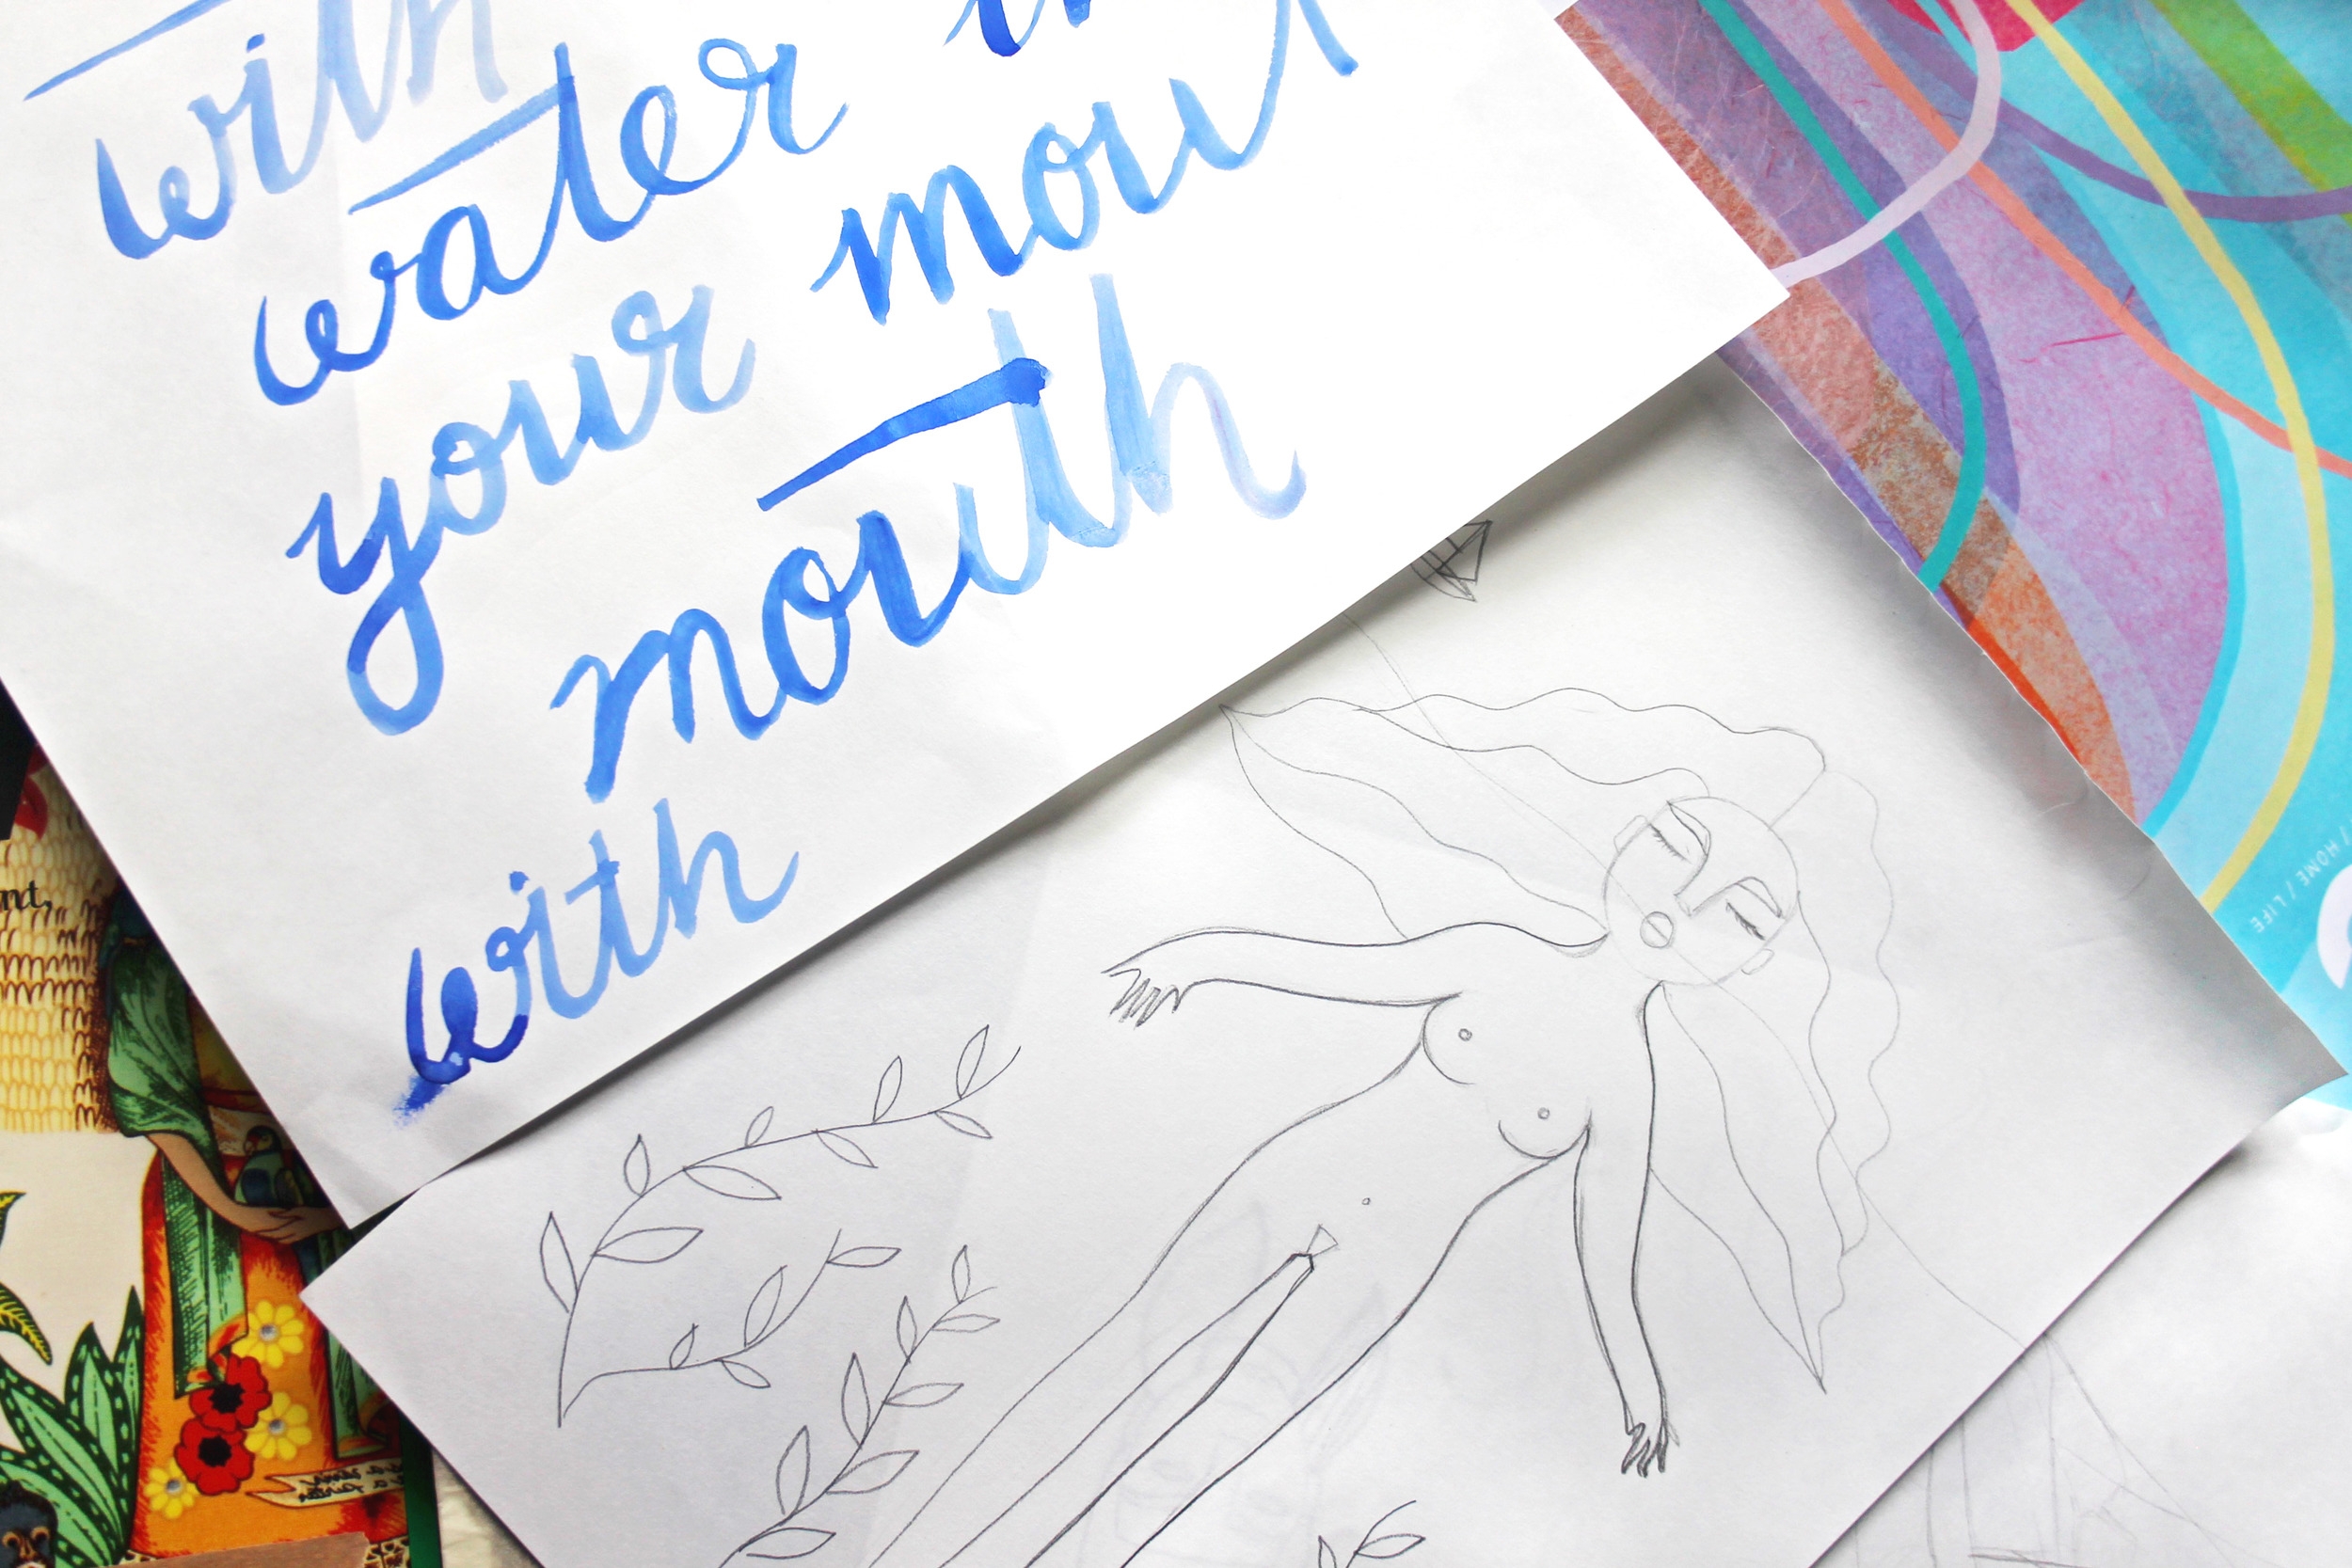 with
water in
your mou
mouth
with
nt,
/ HOME / LIFE